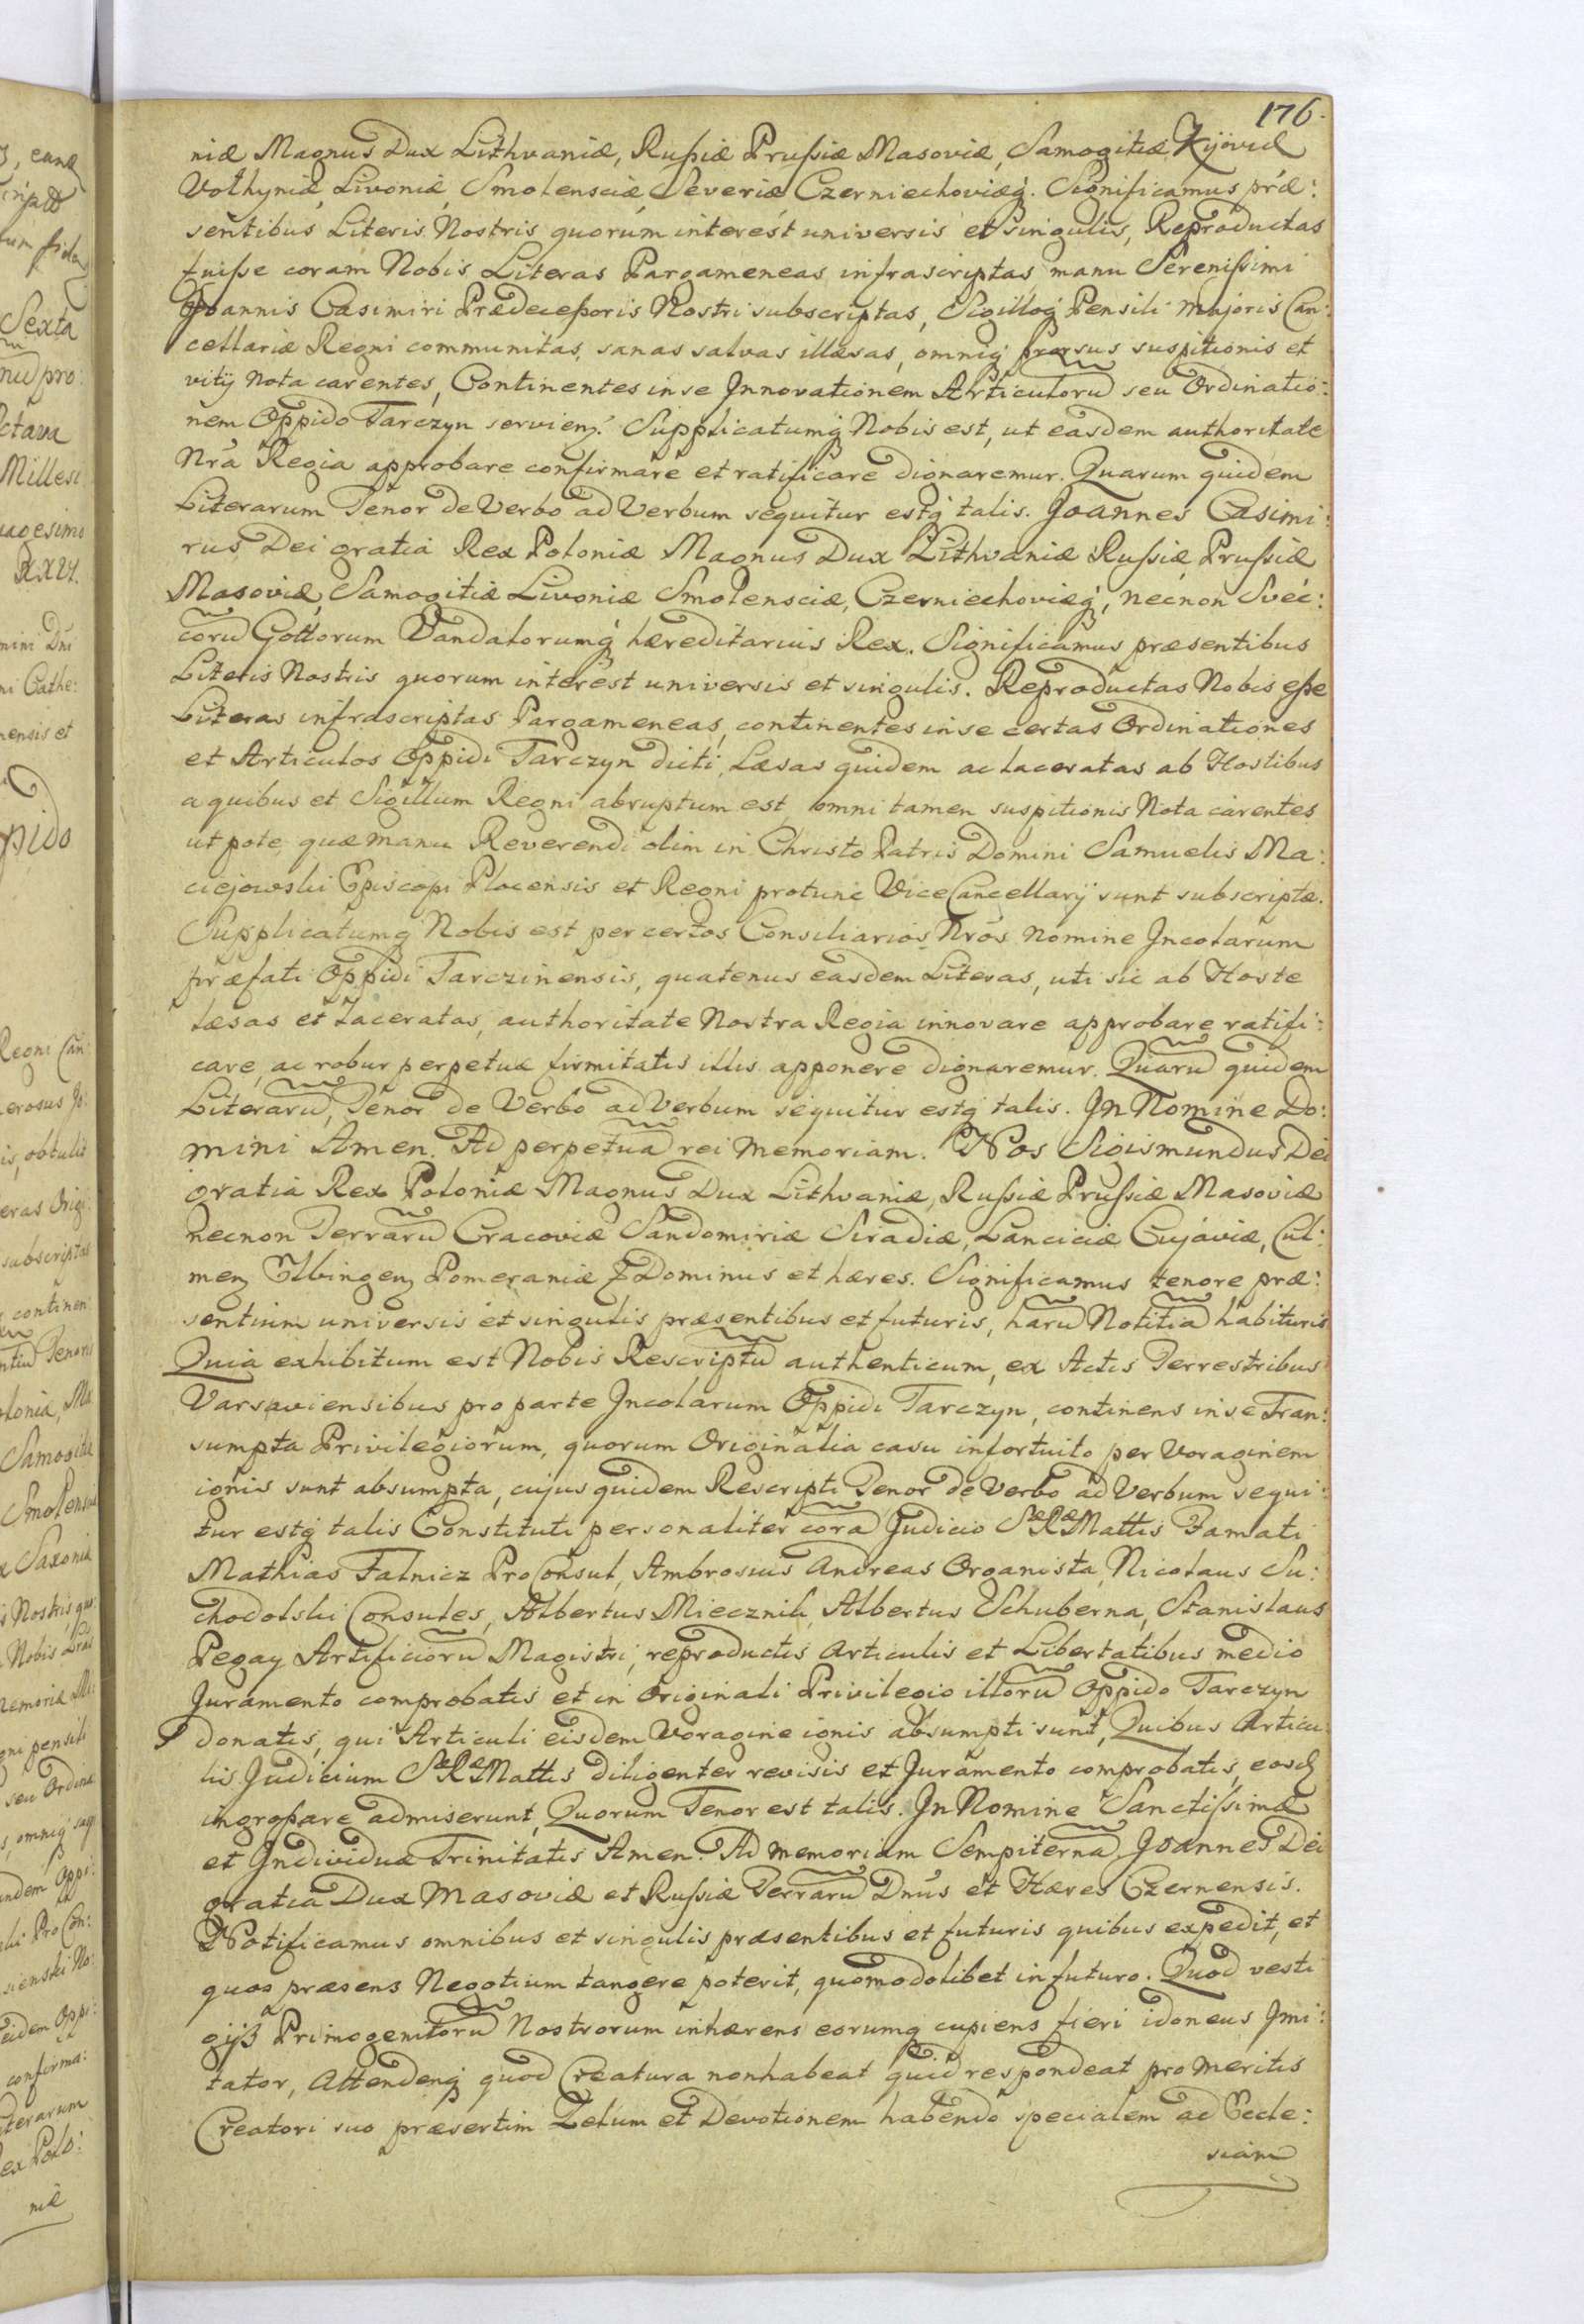 176.
niæ Magnus Dux Lithvaniæ, Rußiæ Prußiæ Masoviæ, Samogitiæ Kijoviæ
Volhyniæ, Livoniæ, Smolensciæ, Severiæ Czerniechoviæq́. Significamus præ:
sentibus Literis Nostris quorum interest universis et singulis, Reproductas
fuiße coram Nobis Literas Pargameneas infrascriptas, manu Sereniſsimi
Joannis Casimiri Prædeceßoris Nostri subscriptas, Sigilloq́ Pensili Majoris Can:
cellariæ Regni communitas, sanas salvas illæsas, omniq́ prorsus suspitionis et
vitij nota carentes, Continentes in se Innovationem Articulorũ seu Ordinatio:
nem Oppido Tarczyn servienʒ. Supplicatumq́ Nobis est, ut easdem authoritate
Nrâ Regia approbare confirmare et ratificare dignaremur. Quarum quidem
Literarum Tenor de Verbo ad Verbum sequitur estq́ talis. Joannes Casimi:
rus Dei gratia Rex Poloniæ Magnus Dux Lithvaniæ Rußiæ, Prußiæ
Masoviæ, Samogitiæ Livoniæ Smolensciæ, Czerniechoviæq́, necnon Svec:
corũ Gottorum Vandalorumq́ hæreditarius Rex. Significamus præsentibus
Literis Nostris quorum interest universis et singulis. Reproductas Nobis eße
Literas infrascriptas Pargameneas, continentes in se certas Ordinationes
et Articulos Oppidi Tarczyn dicti, Læsas quidem ac laceratas ab Hostibus
a quibus et Sigillum Regni abruptum est, omni tamen suspitionis Nota carentes
ut pote quæ manu Reverendi olim in Christo Patris Domini Samuelis Ma:
ciejowski Episcopi Plocensis et Regni protunc ViceCancellarij sunt subscriptæ.
Supplicatumq́ Nobis est per certos Consiliarios Nrõs nomine Incolarum
præfati Oppidi Tarczinensis, quatenus easdem Literas, uti sic ab Hoste
læsas et laceratas, authoritate Nostra Regia innovare approbare ratifi:
care, ac robur perpetuæ firmitatis illis apponere dignaremur. Quarũ quidem
Literarũ, Tenor de Verbo ad Verbum sequitur estq́ talis. In Nomine Do:
mini Amen. Ad perpetuã rei memoriam. Nos Sigismundus Dei
gratia Rex Poloniæ Magnus Dux Lithvaniæ, Rußiæ Prußiæ Masoviæ
necnon Terrarũ Cracoviæ Sandomiriæ Siradiæ, Lanciciæ Cujaviæ, Cul:
menʒ Elbingenʒ Pomeraniæ Dominus et hæres. Significamus tenore præ:
sentium universis et singulis præsentibus et futuris, harũ Notitiã habituris
Quia exhibitum est Nobis Rescriptũ authenticum, ex Actis Terrestribus
Varsaviensibus pro parte Incolarum Oppidi Tarczyn, continens in se Tran:
sumpta Privilegiorum, quorum Originalia casu infortuito per Voraginem
ignis sunt absumpta, cujus quidem Rescripti Tenor de Verbo ad Verbum sequi:
tur estq́ talis Constituti personaliter corã Judicio SæRæMattis Famati
Mathias Falnicz ProConsul, Ambrosius Andreas Organista, Nicolaus Su:
chodolski Consules, Albertus Miecznik, Albertus Schuberna, Stanislaus
Pegay Artificiorũ Magistri, reproductis Articulis et Libertatibus medio
Juramento comprobatis et in Originali Privilegio illorũ Oppido Tarczyn
donatis, qui Articuli eisdem Voragine ignis absumpti sunt, Quibus Articu
lis Judicium SæRæMattis diligenter revisis et Juramento comprobatis, eosd
ingroßare admiserunt, Quorum Tenor est talis. In Nomine Sanctißimæ
et Individuæ Trinitatis Amen. Ad memoriam Sempiternã, Joannes Dei
gratia Dux Masoviæ et Rußiæ Terrarũ Dnũs et Hæres Czernensis.
Notificamus omnibus et singulis præsentibus et futuris quibus expedit, et
quos præsens Negotium tangere poterit, quomodolibet in futuro. Quod vesti
gijs Primogenitorũ Nostrorum inhærens eorumq́ cupiens fieri idoneus Imi:
tator, Attendenq́ quod Creatura non habeat quid respondeat pro meritis
Creatori suo præsertim Zelum et Devotionem habendo specialem ad Eccle:
siam